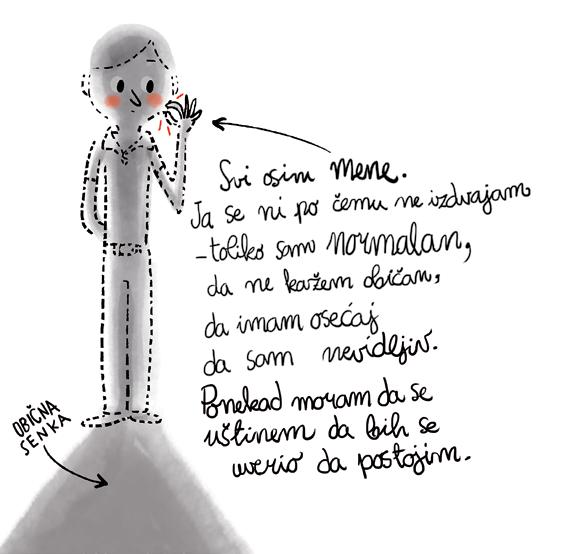 Svi osim mene.
Ja se ni po čemu ne izdvajam
-toliko sam normalan,
da ne kažem običan,
da imam osećaj
da sam nevidljiv.
Ponekad moram da se
uštinem da bih se
uverio da postojim.
OBIČNA
SENKA